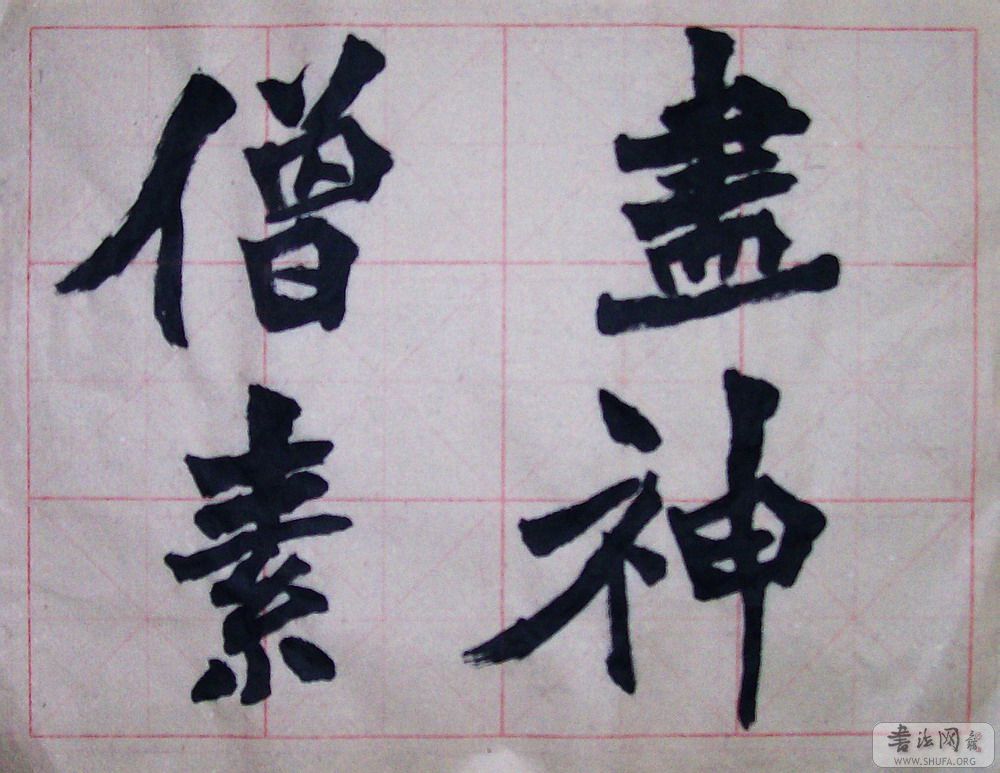 盡神
僧素
書法网
WWW.SHUFA.ORG